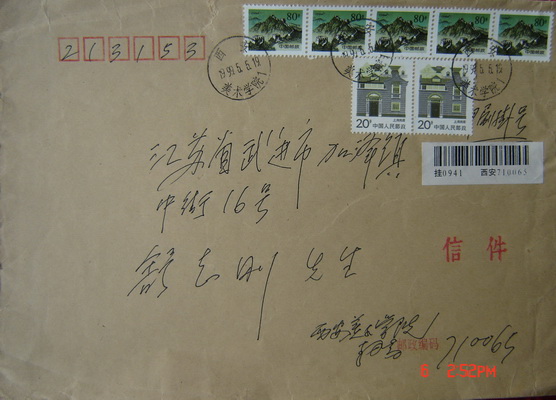 213153
80分 80分 80分 80分 80分
中国邮政 中国邮政 中国邮政 中国邮政 中国邮政
西安
1999.6.6.19
美术学院1
20分 中国人民邮政 20分 中国人民邮政
挂号
挂0941 西安710065
江苏省武进市
镇
中街16号
舒志刚 先生
信件
西安美术学院
邮政编码 710065
6 2:52PM